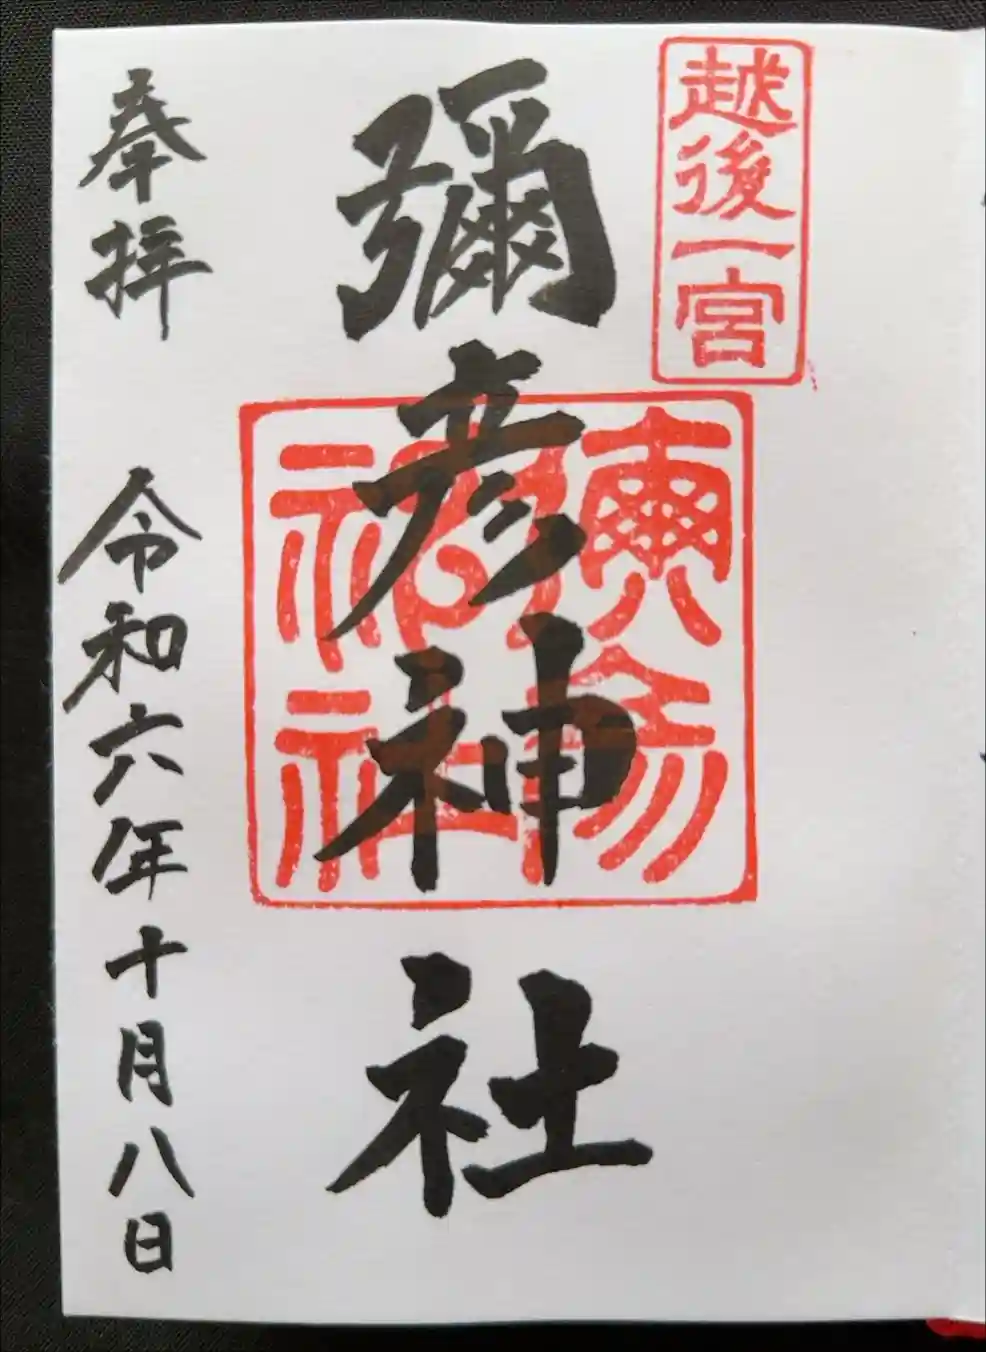 越後一宮
彌彦神社
奉拝　令和六年十月八日